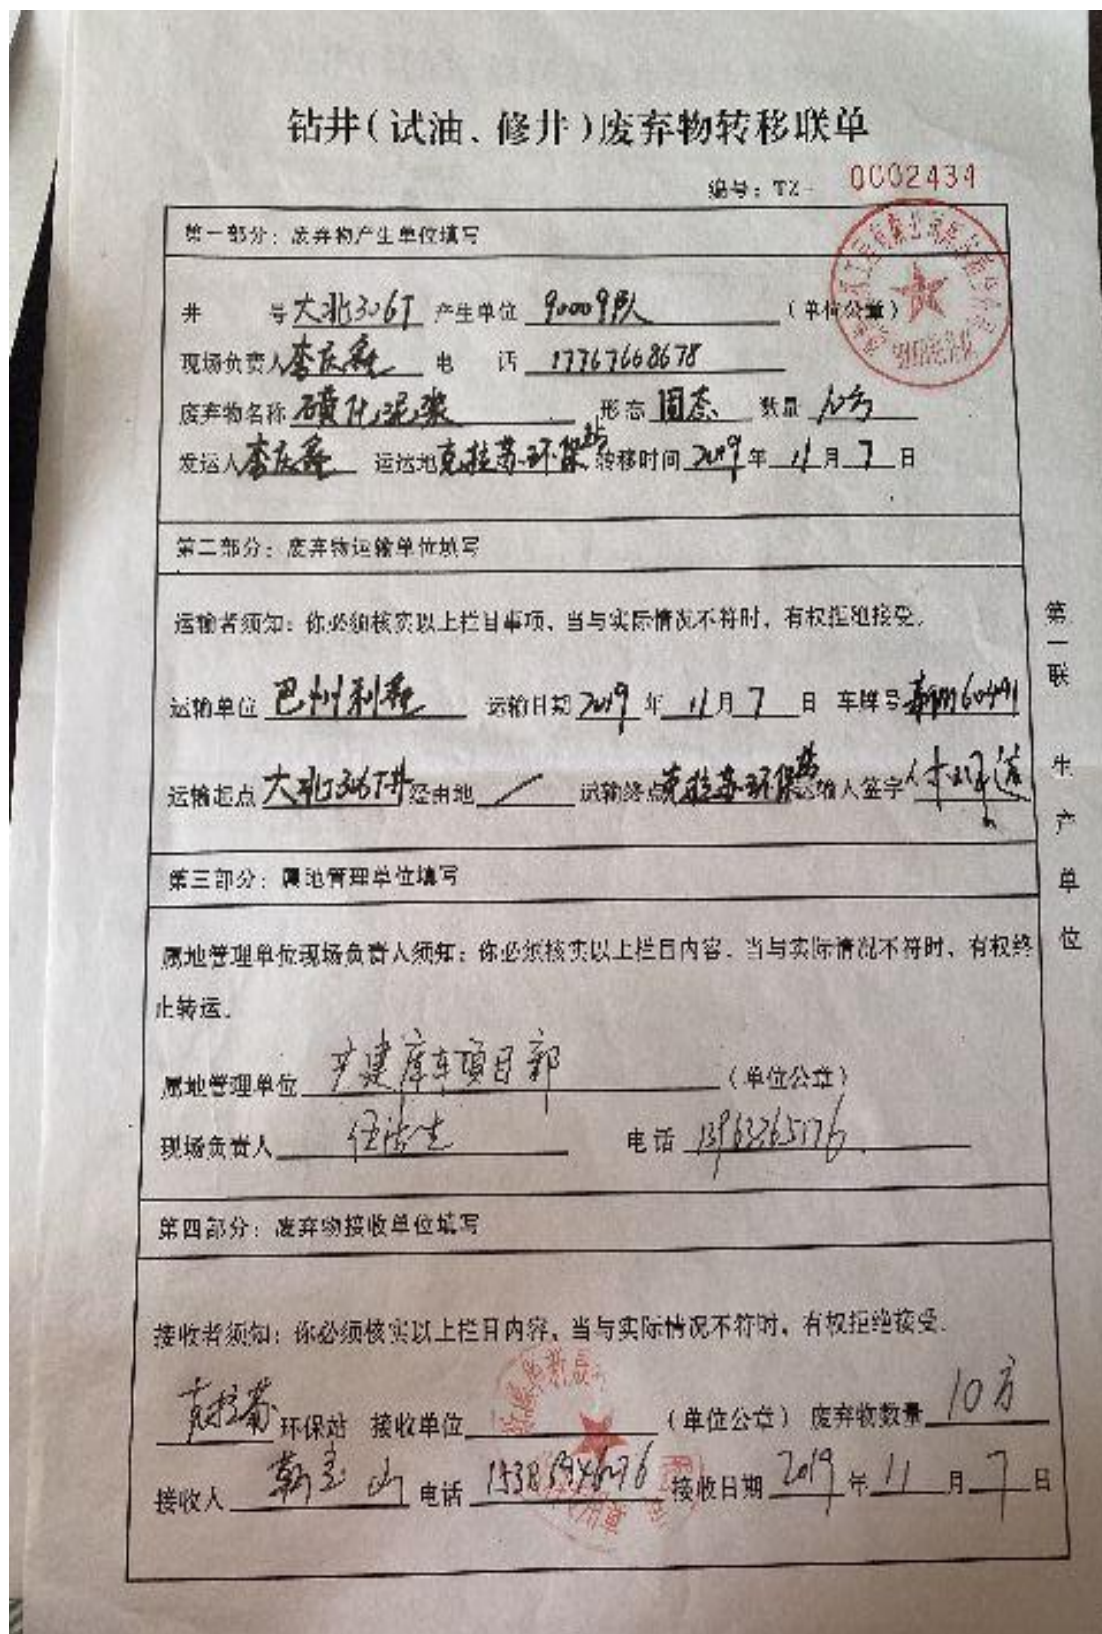 钻井(试油、修井)废弃物转移联单
编号:TZ- 0002434
第一部分:废弃物产生单位填写
井 号大北306T 产生单位 90009队 (单位公章)
现场负责人李庆鑫 电 话 17767668678
废弃物名称 磺化泥浆 形态 固态 数量 10方
发运人李庆鑫 运达地克拉苏环保站 转移时间 2019 年 11 月 7 日
第二部分:废弃物运输单位填写
运输者须知:你必须核实以上栏目事项,当与实际情况不符时,有权拒绝接受。
运输单位 巴州利 运输日期 2019 年 11 月 7 日 车牌号
运输起点 大北306T井 经由地 / 运输终点克拉苏环保站 运输人签字
第三部分:属地管理单位填写
属地管理单位现场负责人须知:你必须核实以上栏目内容,当与实际情况不符时,有权终
止转运。
属地管理单位 产建库车项目部 (单位公章)
现场负责人 电话 13963265176
第四部分:废弃物接收单位填写
接收者须知:你必须核实以上栏目内容,当与实际情况不符时,有权拒绝接受。
克拉苏 环保站 接收单位 (单位公章) 废弃物数量 10方
接收人 电话 接收日期 2019 年 11 月 7 日
第一联 生产单位